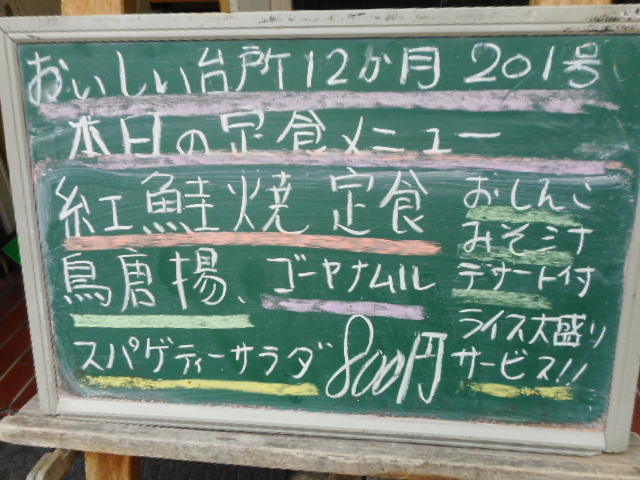 おいしい台所12か月 201号
本日の定食メニュー
紅鮭焼定食
鳥唐揚、ゴーヤナムル
スパゲティーサラダ 800円
おしんこ
みそ汁
デザート付
ライス大盛り
サービス!!